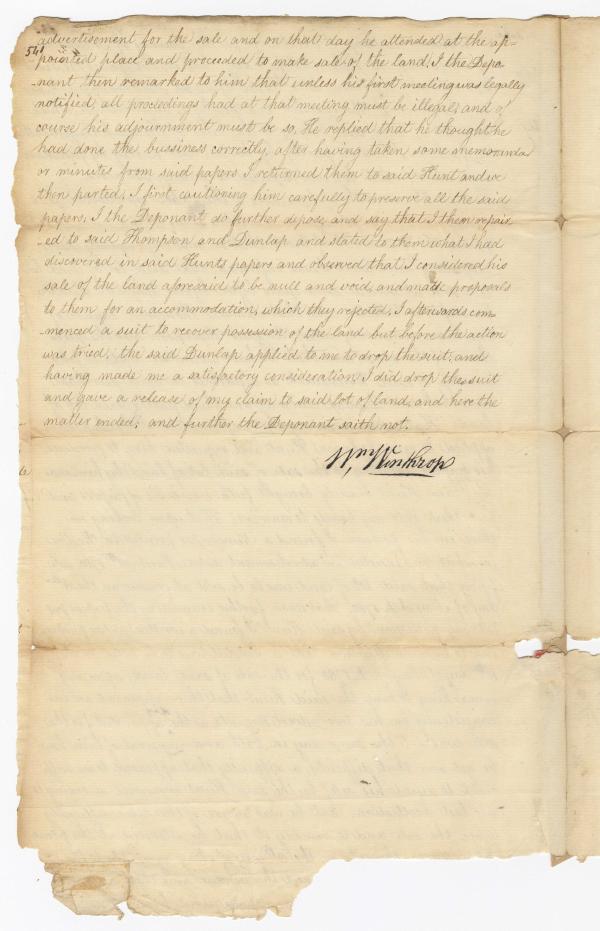 541
advertisement for the sale and on that day he attended at the ap-
pointed place and proceeded to make sale of the land. I the Depo-
-nant then remarked to him that unless his first meeting was legally
notified, all proceedings had at that meeting must be illegal, and of
course his adjournment must be so. He replied that he thought he
had done the bussiness correctly, after having taken some memoranda
or minutes from said papers I returned them to said Hunt and we
then parted, I first cautioning him carefully to preserve all the said
papers. I the Deponant do further depose and say that I then repair
-ed to said Thompson and Dunlap and stated to them what I had
discovered in said Hunts papers and observed that I considered his
sale of the land aforesaid to be null and void, and made proposals
to them for an accommodation, which they rejected. I afterwards com-
menced a suit to recover possession of the land but before the action
was tried, the said Dunlap applied to me to drop the suit, and
having made me a satisfactory consideration I did drop the suit
and gave a release of my claim to said lot of land, and here the
matter ended; and further the Deponant saith not.
Wm Winthrop